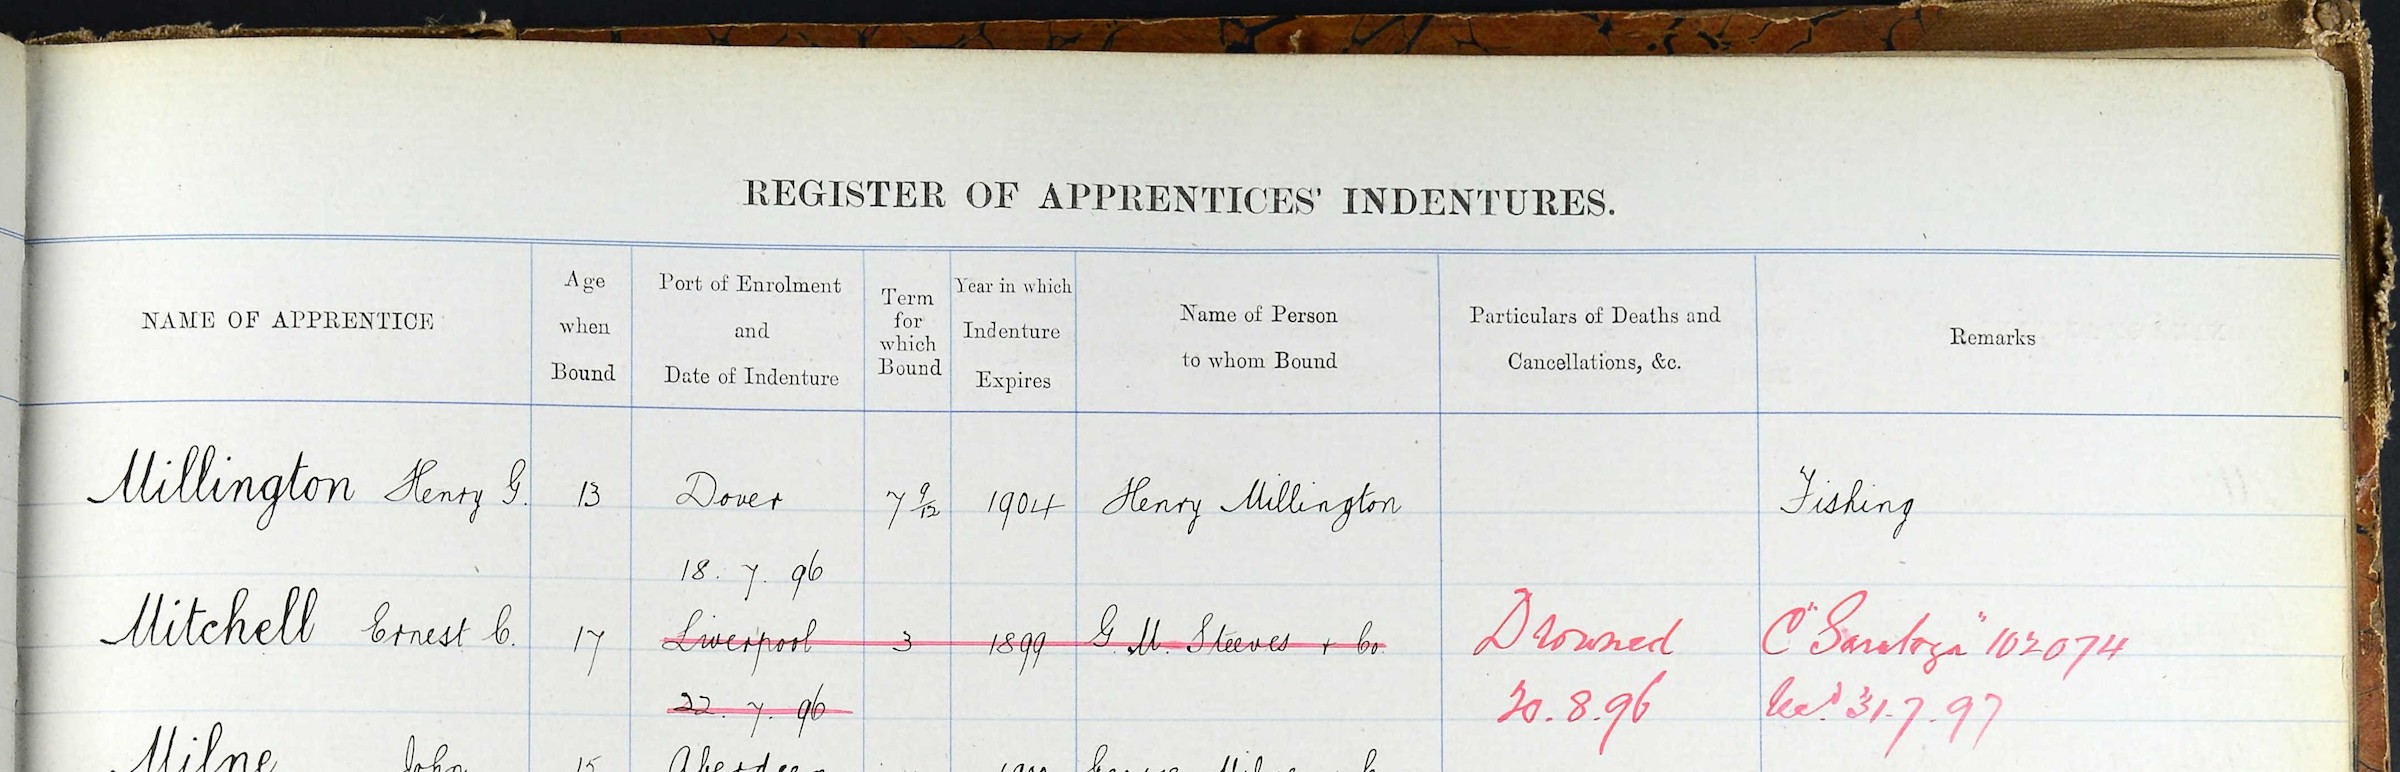 REGISTER OF APPRENTICES' INDENTURES.
NAME OF APPRENTICE
Age
when
Bound
Port of Enrolment
and
Date of Indenture
Term
for
which
Bound
Year in which
Indenture
Expires
Name of Person
to whom Bound
Particulars of Deaths and
Cancellations, &c.
Remarks
Millington Henry G. 13 Dover 7 9/12 1904 Henry Millington Fishing
18. 7. 96
Mitchell Ernest C. 17 Liverpool 3 1899 G. M. Steeves + Co. Drowned C "Saratoga" 102074
22. 7. 96 20.8.96 31.7.97
Milne John 15 Aberdeen